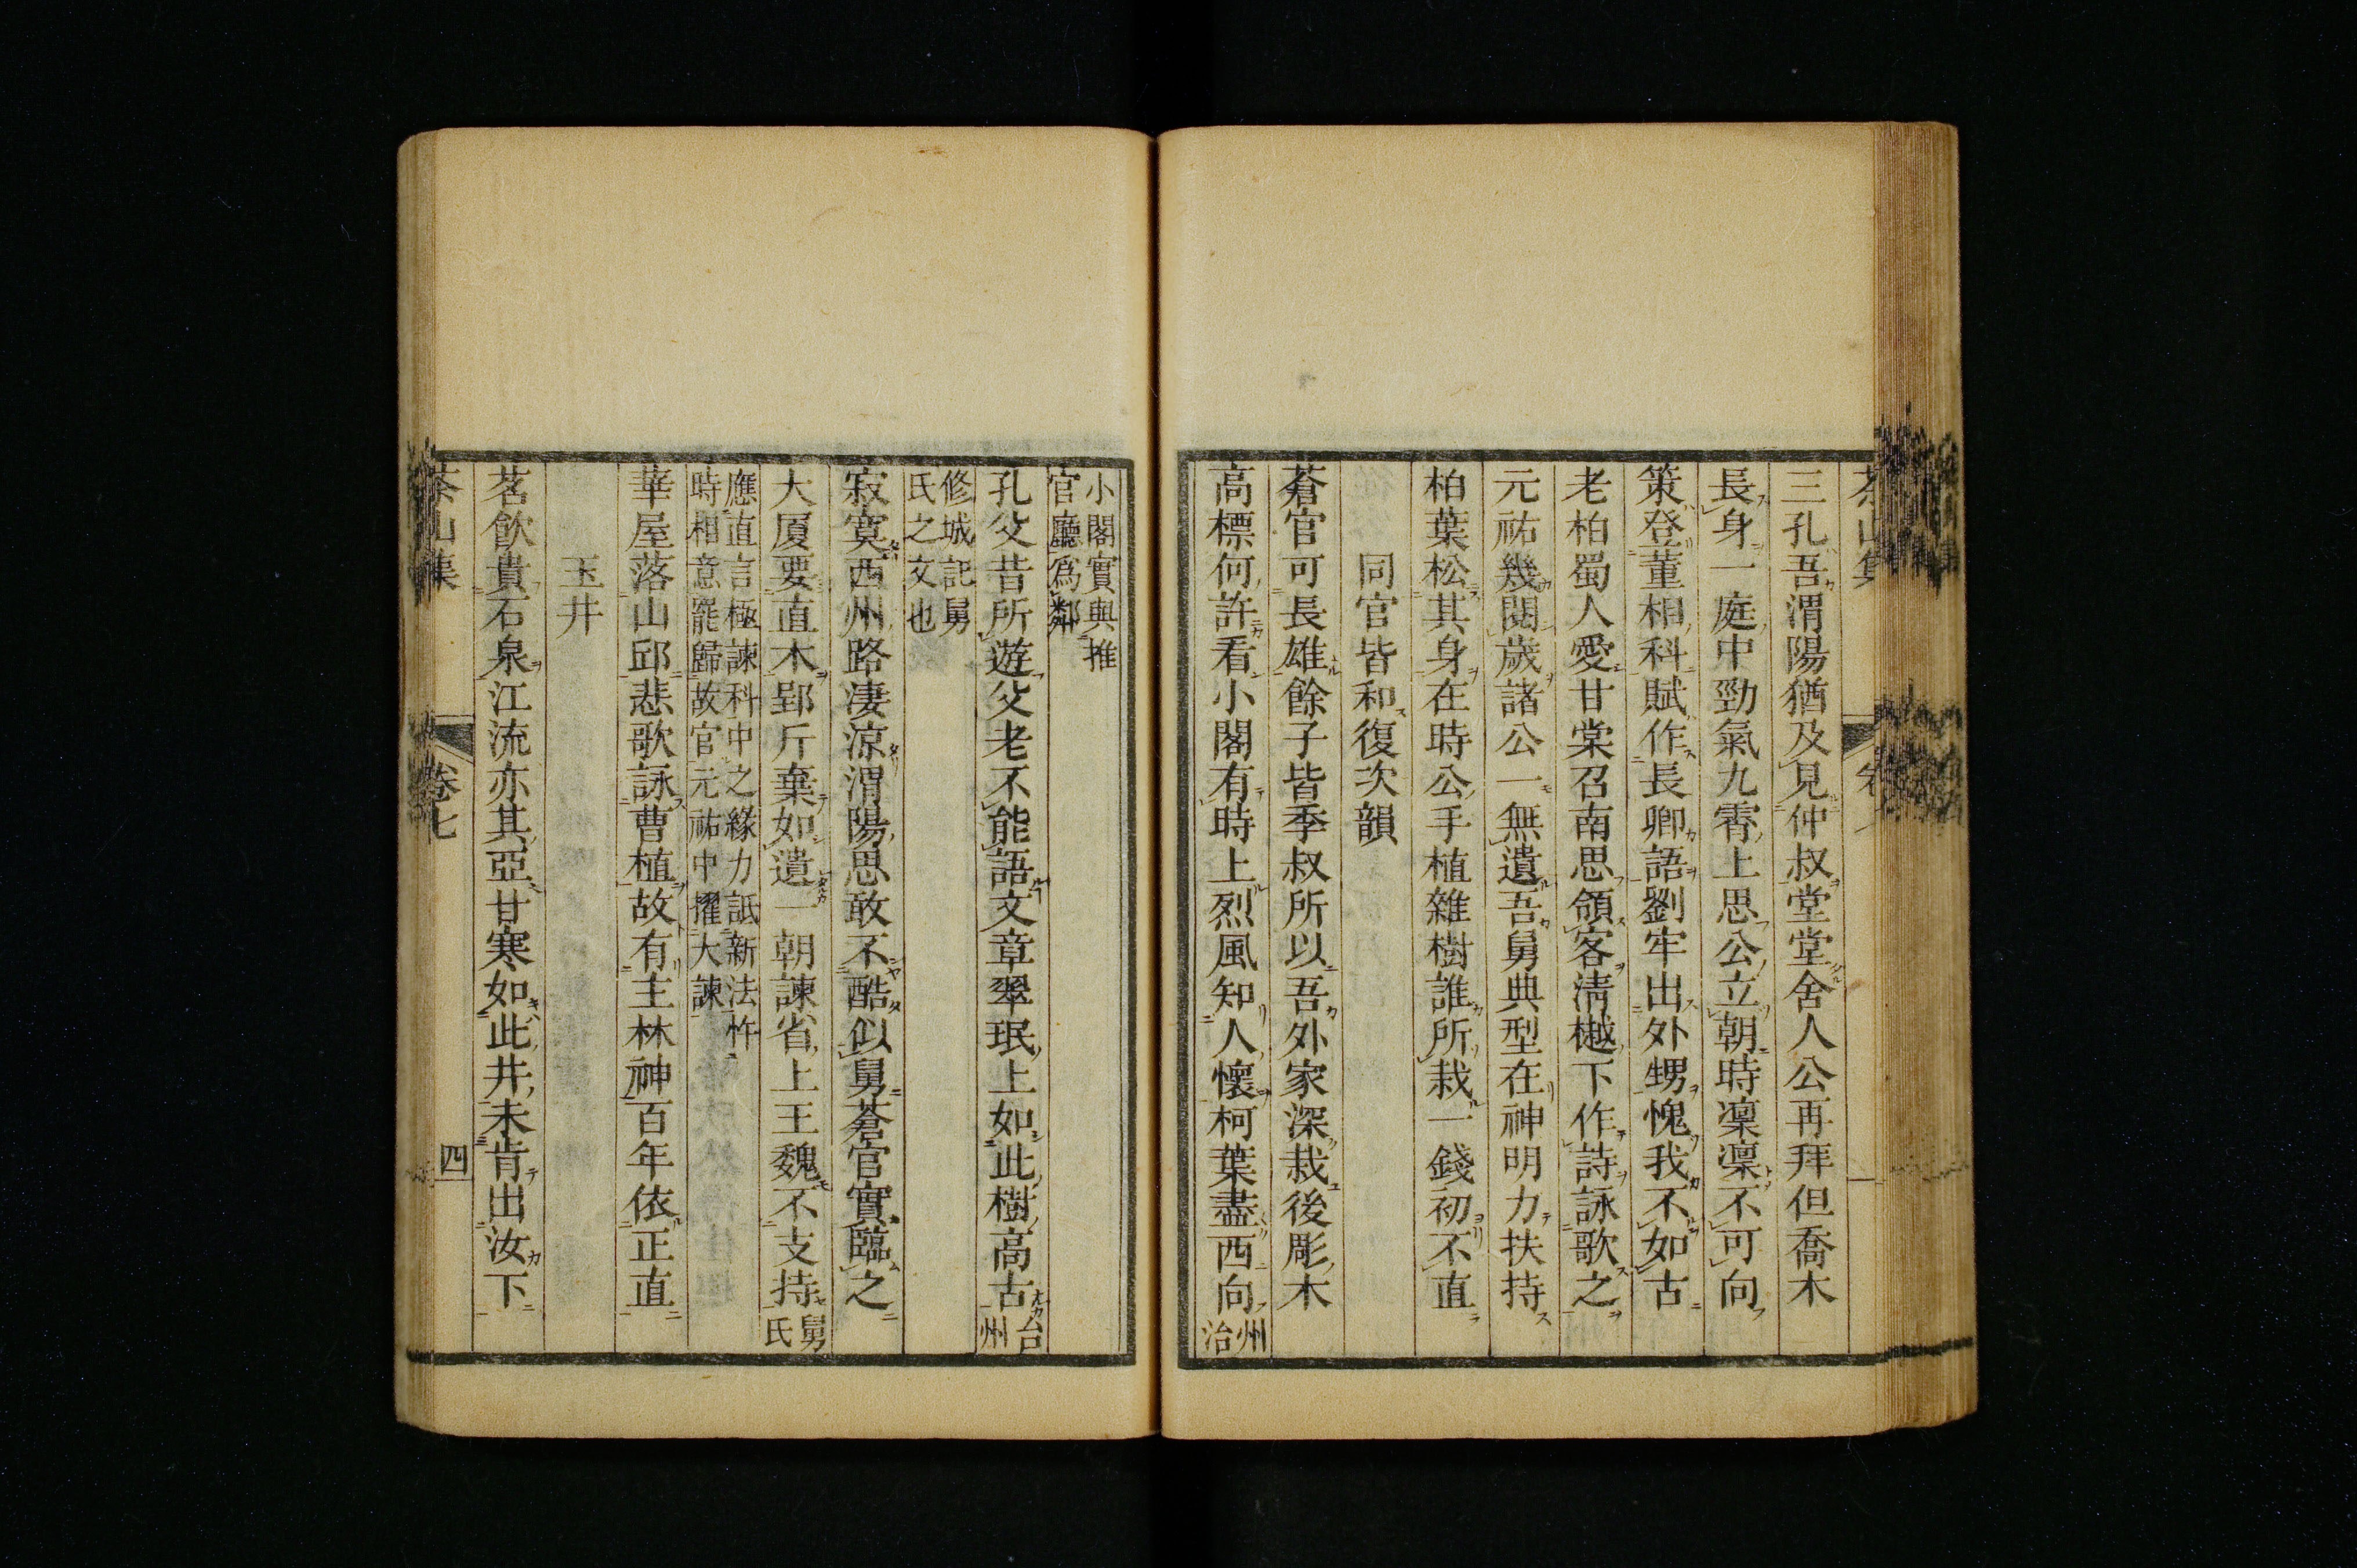 茶山集
三孔吾渭陽猶及見仲叔堂堂舍人公再拜但喬木
長身一庭中勁氣九霄上思公立朝時凜凜不可向
策登董相科賦作長卿語劉牢出外甥愧我不如古
老柏蜀人愛甘棠召南思領客淸樾下作詩詠歌之
元祐幾閱歲諸公一無遺吾舅典型在神明力扶持
柏葉松其身在時公手植雜樹誰所栽一錢初不直
同官皆和復次韻
蒼官可長雄餘子皆季叔所以吾外家深栽後彫木
高標何許看小閣有時上烈風知人懷柯葉盡西向州治
小閣實與推
官廳爲鄰
孔父昔所遊父老不能語文章翠珉上如此樹高古台州
修城記舅
氏之文也
寂寞西州路淒涼渭陽思敢不酷似舅蒼官實臨之
大厦要直木郢斤棄如遺一朝諫省上王魏不支持舅氏
應直言極諫科中之緣力詆新法忤
時相意罷歸故官元祐中擢大諫
華屋落山邱悲歌詠曹植故有主林神百年依正直
玉井
茗飮貴石泉江流亦其亞甘寒如此井未肯出汝下
茶山集 卷七 四